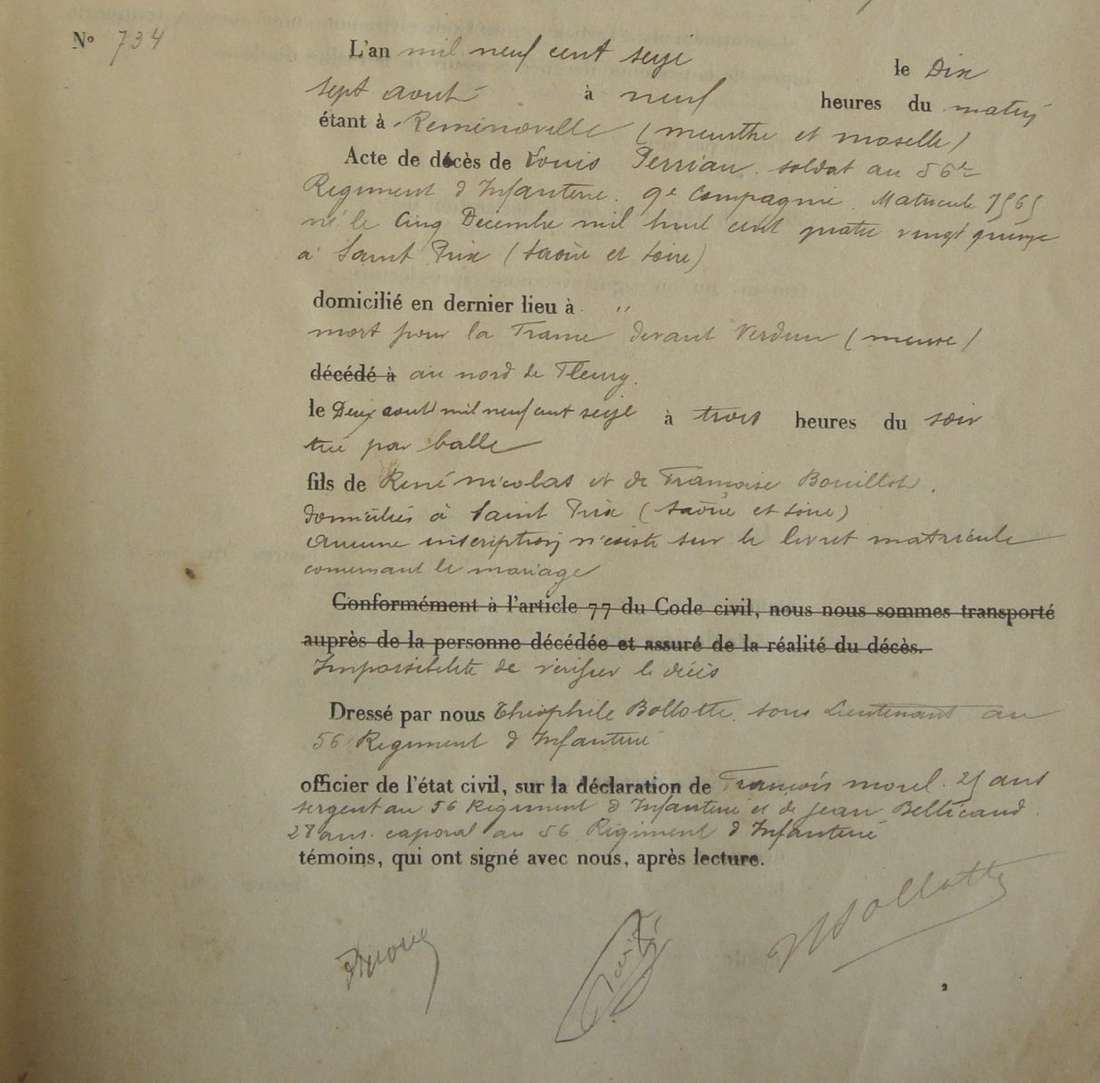 N° 734
L'an mil neuf cent seize le Dix
sept aout à neuf heures du matin
étant à Reminoville (meurthe et moselle)
Acte de décès de Louis Perriau. soldat au 56e
Regiment d'Infanterie. 9e Compagnie. Matricule 7565
né le Cinq Decembre mil huit cent quatre vingt quinze
à Saint Prix (Saône et Loire)
domicilié en dernier lieu à "
mort pour la France devant Verdun (meuse)
décédé à au nord de Fleury.
le Deux aout mil neuf cent seize à trois heures du soir
tué par balle
fils de René nicolas et de Françoise Bouillot.
domiciliés à Saint Prix (Saône et Loire)
Aucune inscription n'existe sur le livret matricule
concernant le mariage
Conformément à l'article 77 du Code civil, nous nous sommes transporté
auprès de la personne décédée et assuré de la réalité du décès.
Impossibilité de vérifier le décès
Dressé par nous Théophile Bollotte. sous Lieutenant au
56 Regiment d'Infanterie
officier de l'état civil, sur la déclaration de François morel. 25 ans
sergent au 56 Regiment d'Infanterie et de Jean Bellicaud.
28 ans. caporal au 56 Regiment d'Infanterie
témoins, qui ont signé avec nous, après lecture.
Bollotte